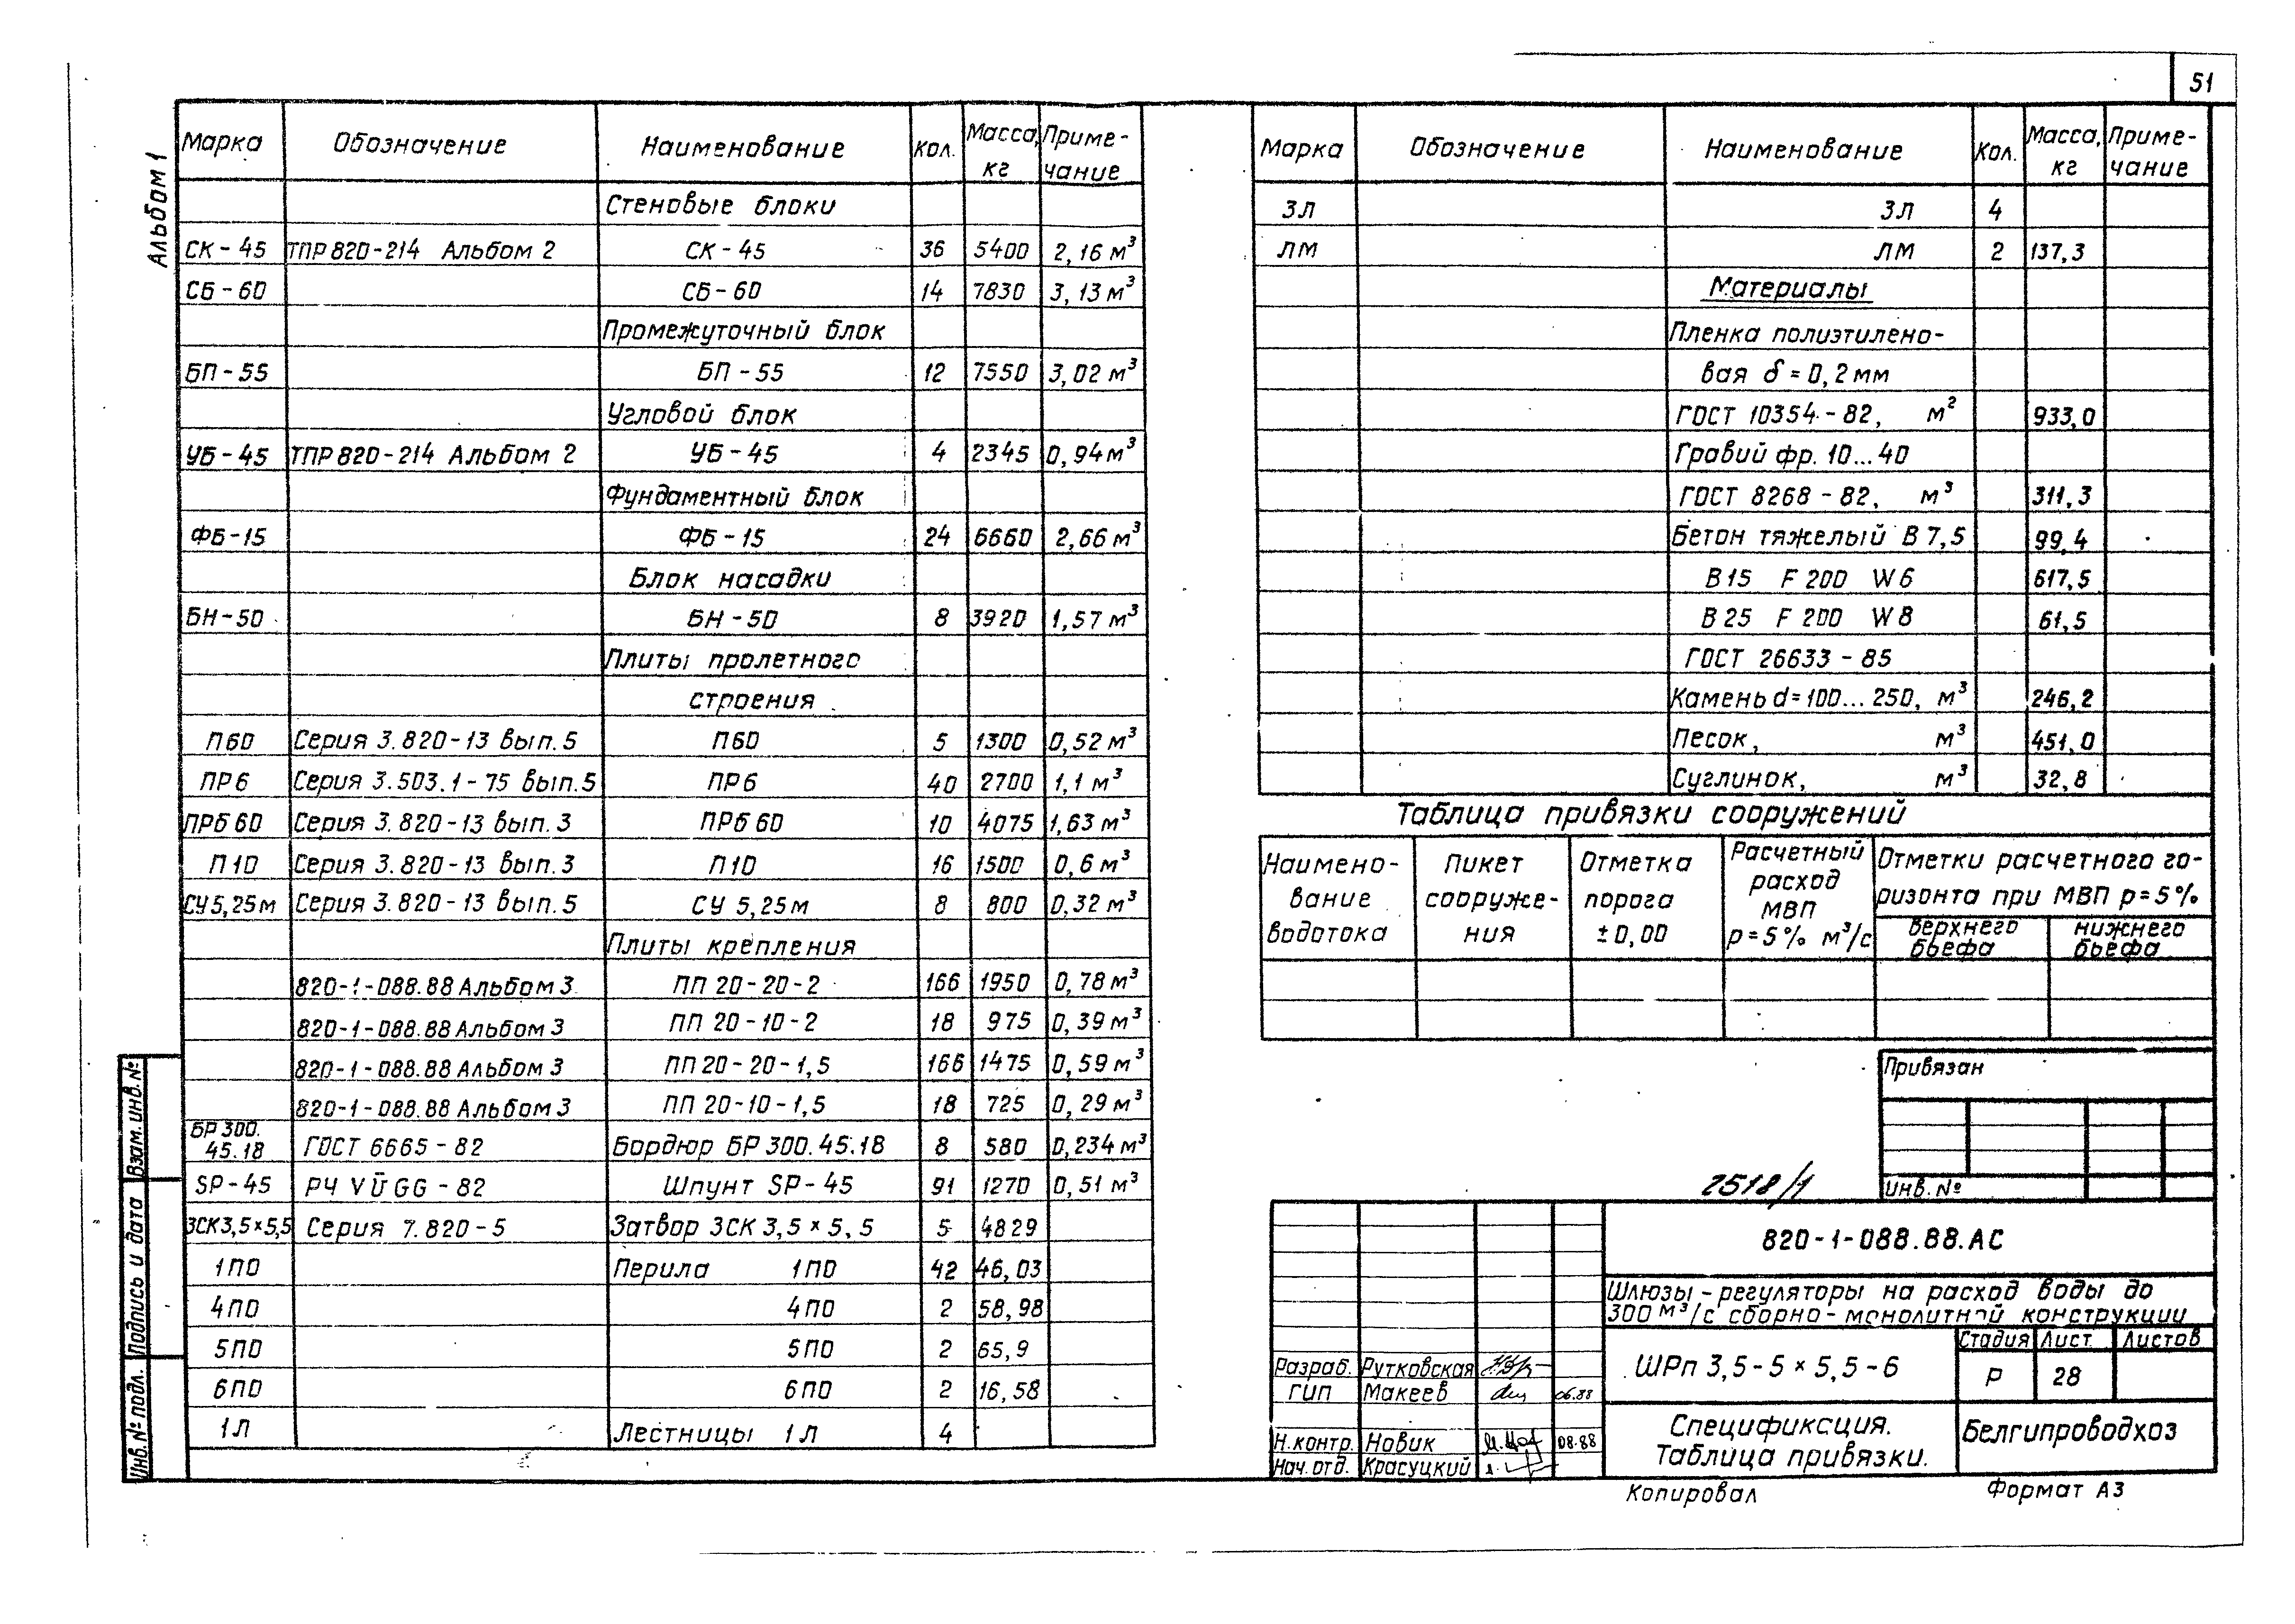 51
Альбом 1
Марка Обозначение Наименование Кол. Масса, кг Приме-чание
Стеновые блоки
СК-45 ТПР 820-214 Альбом 2 СК-45 36 5400 2,16 м³
СБ-60 СБ-60 14 7830 3,13 м³
Промежуточный блок
БП-55 БП-55 12 7550 3,02 м³
Угловой блок
УБ-45 ТПР 820-214 Альбом 2 УБ-45 4 2345 0,94 м³
Фундаментный блок
ФБ-15 ФБ-15 24 6660 2,66 м³
Блок насадки
БН-50 БН-50 8 3920 1,57 м³
Плиты пролетного
строения
П60 Серия 3.820-13 вып.5 П60 5 1300 0,52 м³
ПР6 Серия 3.503.1-75 вып.5 ПР6 40 2700 1,1 м³
ПРб 60 Серия 3.820-13 вып.3 ПРб 60 10 4075 1,63 м³
П10 Серия 3.820-13 вып.3 П10 16 1500 0,6 м³
СУ5,25м Серия 3.820-13 вып.5 СУ 5,25м 8 800 0,32 м³
Плиты крепления
820-1-088.88 Альбом 3 ПП 20-20-2 166 1950 0,78 м³
820-1-088.88 Альбом 3 ПП 20-10-2 18 975 0,39 м³
820-1-088.88 Альбом 3 ПП 20-20-1,5 166 1475 0,59 м³
820-1-088.88 Альбом 3 ПП 20-10-1,5 18 725 0,29 м³
БР 300.
45.18 ГОСТ 6665-82 Бордюр БР 300.45.18 8 580 0,234 м³
SP-45 РЧ VÜ GG-82 Шпунт SP-45 91 1270 0,51 м³
ЗСК3,5×5,5 Серия 7.820-5 Затвор ЗСК 3,5×5,5 5 4829
1ПО Перила 1ПО 42 46,03
4ПО 4ПО 2 58,98
5ПО 5ПО 2 65,9
6ПО 6ПО 2 16,58
1Л Лестницы 1Л 4
Взам. инв. №
Подпись и дата
Инв. № подл.
Марка Обозначение Наименование Кол. Масса, кг Приме-чание
3Л 3Л 4
ЛМ ЛМ 2 137,3
Материалы
Пленка полиэтилено-
вая δ=0,2мм
ГОСТ 10354-82, м² 933,0
Гравий фр. 10...40
ГОСТ 8268-82, м³ 311,3
Бетон тяжелый В 7,5 99,4
В15 F 200 W6 617,5
В25 F 200 W8 61,5
ГОСТ 26633-85
Камень d=100...250, м³ 246,2
Песок, м³ 451,0
Суглинок, м³ 32,8
Таблица привязки сооружений
Наимено-вание водотока
Пикет сооруже-ния
Отметка порога ±0,00
Расчетный расход МВП p=5% м³/с
Отметки расчетного го-
ризонта при МВП p=5%
верхнего бьефа
нижнего бьефа
Привязан
Инв. №
2518/1
820-1-088.88.АС
Шлюзы-регуляторы на расход воды до
300 м³/с сборно-монолитной конструкции
ШРп 3,5-5×5,5-6
Стадия Лист Листов
Р 28
Разраб. Рутковская
ГИП Макеев 06.88
Н.контр. Новик 08.88
Нач.отд. Красуцкий
Спецификация.
Таблица привязки.
Белгипроводхоз
Копировал
Формат А3